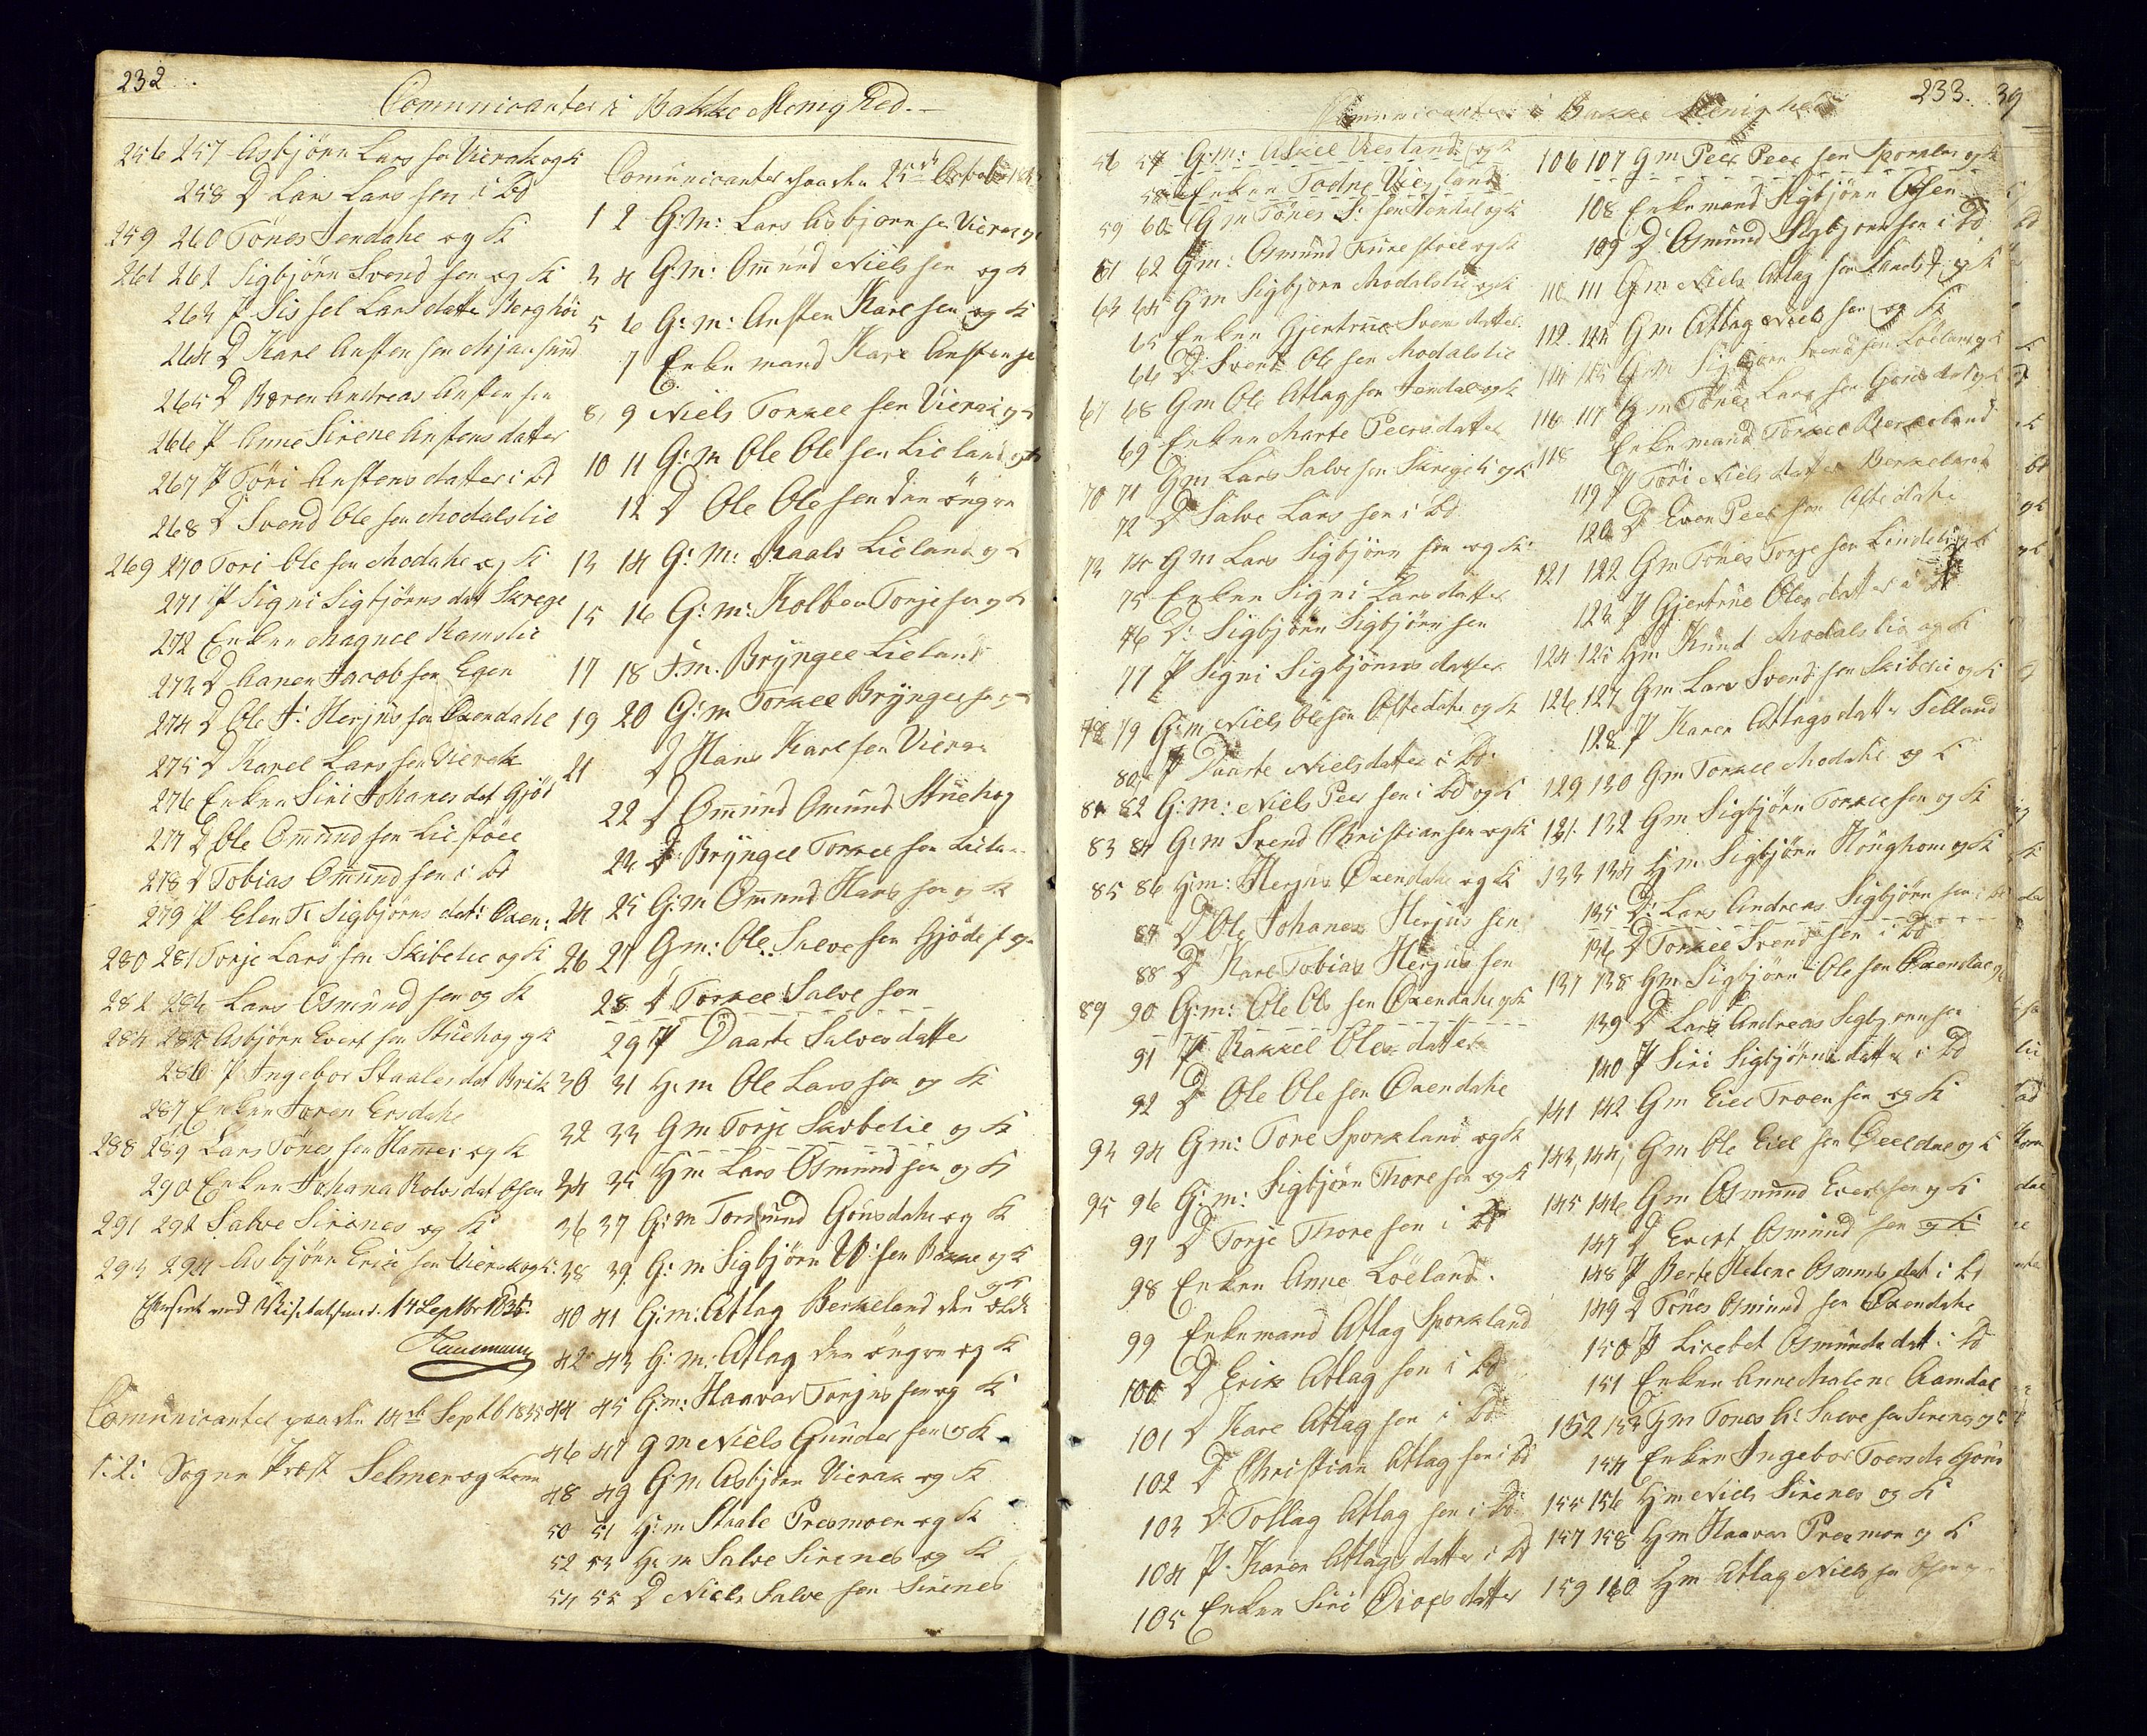 232
Communicanter i Bakke Menighed.
256 257 Asbjörn Lars sen Vierak og K
258 D Lars Lars sen i bd
259 260 Tönes Jendahe og K
261 262 Sigbjörn Svend sen og K
263 P Sissel Larsdatter Berghöi
264 D Karl Ansten sen Mjaasund
265 D Bören Andreas Ansten sen
266 P Anne Sirene Anstensdatter
267 P Töri Anstensdatter i bd
268 D Svend Ole sen Modalslie
269 270 Tori Ole sen Modahe og K
271 P Signi Sigbjörns dat Skrege
272 Enken Magnel Ramslie
273 D Aanen Jacob sen Egen
274 D Ole J: Herjus sen Oxendahe
275 D Karel Lars sen Vierak
276 Enken Siri Johanes dat Gjöd
277 D Ole Omund sen Lie
278 D Tobias Omund sen i bd
279 P Elen T: Sigbjörns dat: Oxen:
280 281 Torje Lars sen Skibelie og K
282 283 Lars Osmund sen og K
284 285 Asbjörn Evert sen Stuehog og K
286 P Ingebor Staalesdat Brik
287 Enken Joren Ersdahe
288 289 Lars Tönes sen Hamer og K
290 Enken Johana Rolvsdat Osen
291 292 Salve Sirenes og K
293 294 Asbjörn Eric sen Vierak og K
Efterseet ved Visitatsen d. 14 Septbr 1835
Communicanter paa den 14de Septb 1835
1: 2: Sogne Præst Selmer og Kone
Communicanter paa den 25de Octobr
1 2 G:M: Lars Asbjörn sen Vierak og
3 4 G:M: Omund Niels sen og K
5 6 G:m: Ansten Karl sen og K
7 Enkemand Karl Ansten sen
8 9 Niels Torkel sen Vierak og
10 11 G:m Ole Ole sen Lieland og K
12 D Ole Ole sen den yngre
13 14 G:M: Staale Lieland og K
15 16 G:m: Kolben Torje sen og K
17 18 F:m. Bryngel Lieland
19 20 G:m Torkel Bryngel sen
21 D Hans Karl sen Vierak
22 D Omund Omund Stuehog
23 D: Bryngel Torkel sen Liela
24 25 G:m Omund Hans sen og K
26 27 Gm: Ole Salve sen Gjöde
28 D Torkel Salve sen
29 P Daarte Salvesdatter
30 31 H:m Ole Lars sen og K
32 33 Gm Torje Skibelie og K
34 35 Hm Lars Osmund sen og K
36 37 G:m Tormund Gousdahe og K
38 39 G:m Sigbjörn W: sen Bakke og K
40 41 G:m: Atlag Berkeland den ælde og K
42 43 G:m: Atlag den yngre og K
44 45 G:m: Haavar Torjus sen og K
46 47 Gm Niels Gunder sen og K
48 49 G:m Asbjörn Vierak og K
50 51 H:m Staale Presmoen og K
52 53 H:m Salve Sirenes og K
54 55 D Niels Salve sen Sirenes
233. 39
Communicanter i Bakke Menighed
56 57 G:M: Axel Viesland og K
58 Enken Todne Viesland
59 60 Gm Tönes S: sen Jendal og K
61 62 Gm: Osmund og K
63 64 Gm Sigbjörn Modalslie og K
65 Enken Gjertrue Svensdatter
66 D: Svend Ole sen Modalslie
67 68 Gm Ole Atlag sen Jendal og K
69 Enken Marte Peersdatter
70 71 Gm Lars Salve sen Skrege og K
72 D Salve Lars sen i bd
73 74 GM Lars Sigbjörn sen og K:
75 Enken Signi Larsdatter
76 D: Sigbjörn Sigbjörn sen
77 P Signi Sigbjörnsdatter
78 79 G:m Niels Ole sen Oftedahe og K
80 P Daarte Nielsdatter i bd
81 82 G:M: Niels Peer sen i bd og K
83 84 G:m Svend Christian sen og K
85 86 H:m: Herjus Oxendahe og K
87 D Ole Johanes Herjus sen
88 D Karl Tobias Herjus sen
89 90 G:m: Ole Ols sen Oxendahe og K
91 P Rakkel Olesdatter
92 D Ole Ole sen Oxendahe
93 94 Gm: Tore Sporkland og K
95 96 G:m: Sigbjörn Thore sen og K
97 D Torje Thore sen i bd
98 Enken Anne Löeland.
99 Enkemand Atlag Sporkland
100 D Erik Atlag sen i bd
101 D Karl Atlag sen i bd
102 D Christian Atlag sen i bd
103 D Tollag Atlag sen i bd
104 P. Karen Atlagsdatter i bd
105 Enken Siri datter
106 107 Gm Peer Peer sen Sporklan og K
108 Enkemand Sigbjörn Osen
109 D Osmund Sigbjörn sen i bd
110 111 Gm Niels Atlag sen og K
112 113 Gm Atlag Niels sen og K
114 115 G:m Sigbjörn Svend sen Löeland og K
116 117 Gm Tönes Lars sen og K
118 Enkemand Torkel Berkeland
119 P Töri Nielsdatter Berkeland
120 D Even Peer sen Oftedahe
121 122 Gm Tönes Torje sen Lindeli og K
123 P Gjertrue Olesdatter i bd
124 125 Hm Knud Modalslie og K
126 127 Gm Lars Svend sen Skibelie og K
128 P Karen Atlagsdatter Selland
129 130 Gm Torkel Modahe og K
131 132 Gm Sigbjörn Torkel sen og K
133 134 H:m Sigbjörn Hönghom og K
135 D: Lars Andreas Sigbjörn sen i bd
136 D Torkel Svend sen i bd
137 138 Hm Sigbjörn Ole sen Oxendae og
139 D Lars Andreas Sigbjörn sen
140 P Siri Sigbjörnsdatter i bd
141 142 Gm Eiel Troen sen og K
143, 144, Gm Ole Eiel sen Qveldal og K
145 146 Gm Osmund Evert sen og K
147 D Evert Osmund sen og K
148 P Berte Helene Osmunds dat i bd
149 D Tönes Osmund sen Oxendahe
150 P Lisebet Osmunds datt i bd
151 Enken Anne Malene Aamdal
152 153 Gm Tönes A: Salve sen Sirenes og K
154 Enken Ingebor
155 156 Hm Niels Sirenes og K
157 158 Hm Haavar Presmon og K
159 160 Hm Atlag Niels sen Osen